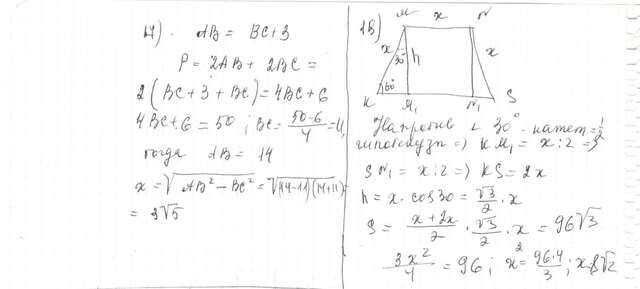 17). AB = BC+3
P = 2AB + 2BC =
2(BC+3+BC) = 4BC+6
4BC+6=50; BC= (50-6)/4 = 11,
тогда AB = 14
x = √(AB² - BC²) = √((14-11)(14+11)) =
= 3√5
18)
M x N
x 30° h x
60°
K M₁ N₁ S
Напротив ∠ 30° - катет = 1/2
гипотенузы => KM₁ = x:2 =>
SN₁ = x:2 => KS = 2x
h = x · cos30 = √3/2 · x
S = (x+2x)/2 · √3/2 · x = 96√3
3x²/4 = 96; x² = 96·4/3; x=8√2